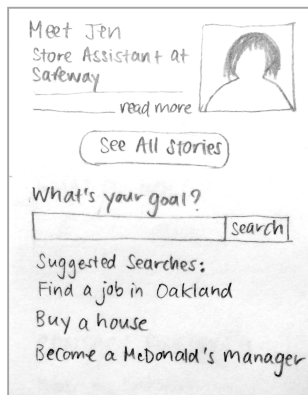 Meet Jen
Store Assistant at
Safeway
read more
See All Stories
What's your goal?
search
Suggested Searches:
Find a job in Oakland
Buy a house
Become a McDonald's manager